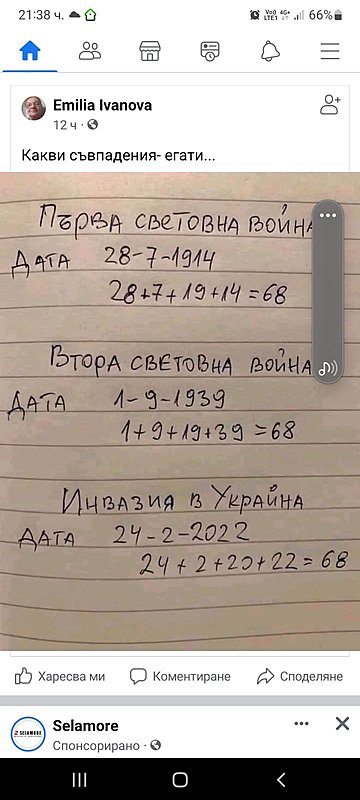 21:38 ч.
Vo)) 4G+
LTE1
66%
Emilia Ivanova
12 ч
Какви съвпадения- егати...
Първа световна война
Дата 28-7-1914
28+7+19+14=68
Втора световна война
Дата 1-9-1939
1+9+19+39=68
Инвазия в Украйна
Дата 24-2-2022
24+2+20+22=68
Харесва ми Коментиране Споделяне
SELAMORE
Selamore
Спонсорирано